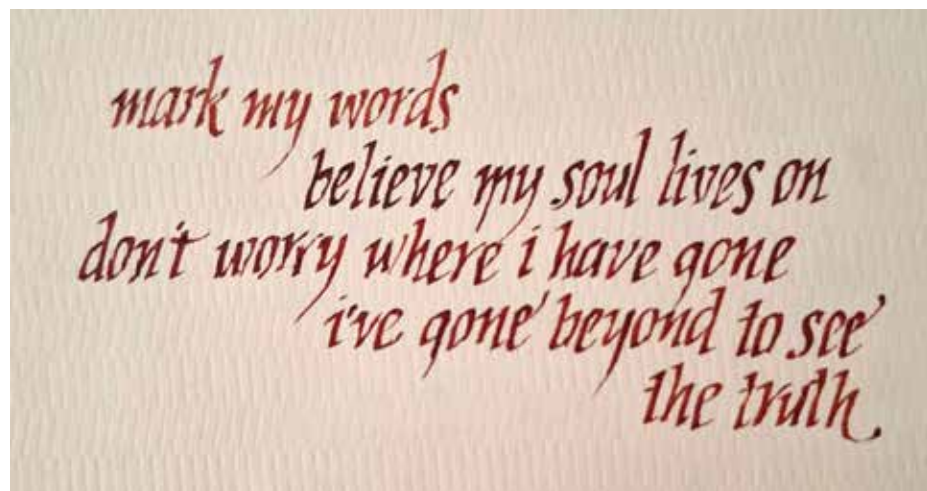 mark my words
believe my soul lives on
don't worry where i have gone
i've gone beyond to see
the truth.